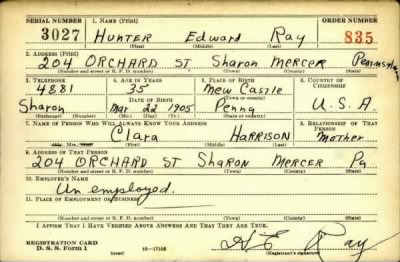 SERIAL NUMBER 1. NAME (Print) ORDER NUMBER
3027 HUNTER Edward RAY 835
(First) (Middle) (Last)
2. ADDRESS (Print)
204 ORCHARD ST Sharon MERCER Pennsylvania
(Number and street or R. F. D. number) (Town) (County) (State)
3. TELEPHONE 4. AGE IN YEARS 5. PLACE OF BIRTH 6. COUNTRY OF CITIZENSHIP
4881 35 New Castle
DATE OF BIRTH (Town or county)
Sharon Mar 22 1905 Penna U.S.A.
(Exchange) (Mo.) (Day) (Yr.) (State or country)
7. NAME OF PERSON WHO WILL ALWAYS KNOW YOUR ADDRESS 8. RELATIONSHIP OF THAT PERSON
Clara HARRISON Mother
(First) (Middle) (Last)
9. ADDRESS OF THAT PERSON
204 ORCHARD ST SHARON MERCER Pa
(Number and street or R. F. D. number) (Town) (County) (State)
10. EMPLOYER'S NAME
Unemployed.
11. PLACE OF EMPLOYMENT OR BUSINESS
(Number and street or R. F. D. number) (Town) (County) (State)
I AFFIRM THAT I HAVE VERIFIED ABOVE ANSWERS AND THAT THEY ARE TRUE.
REGISTRATION CARD
D. S. S. Form 1 (over) 16-17105 H E Ray
(Registrant's signature)